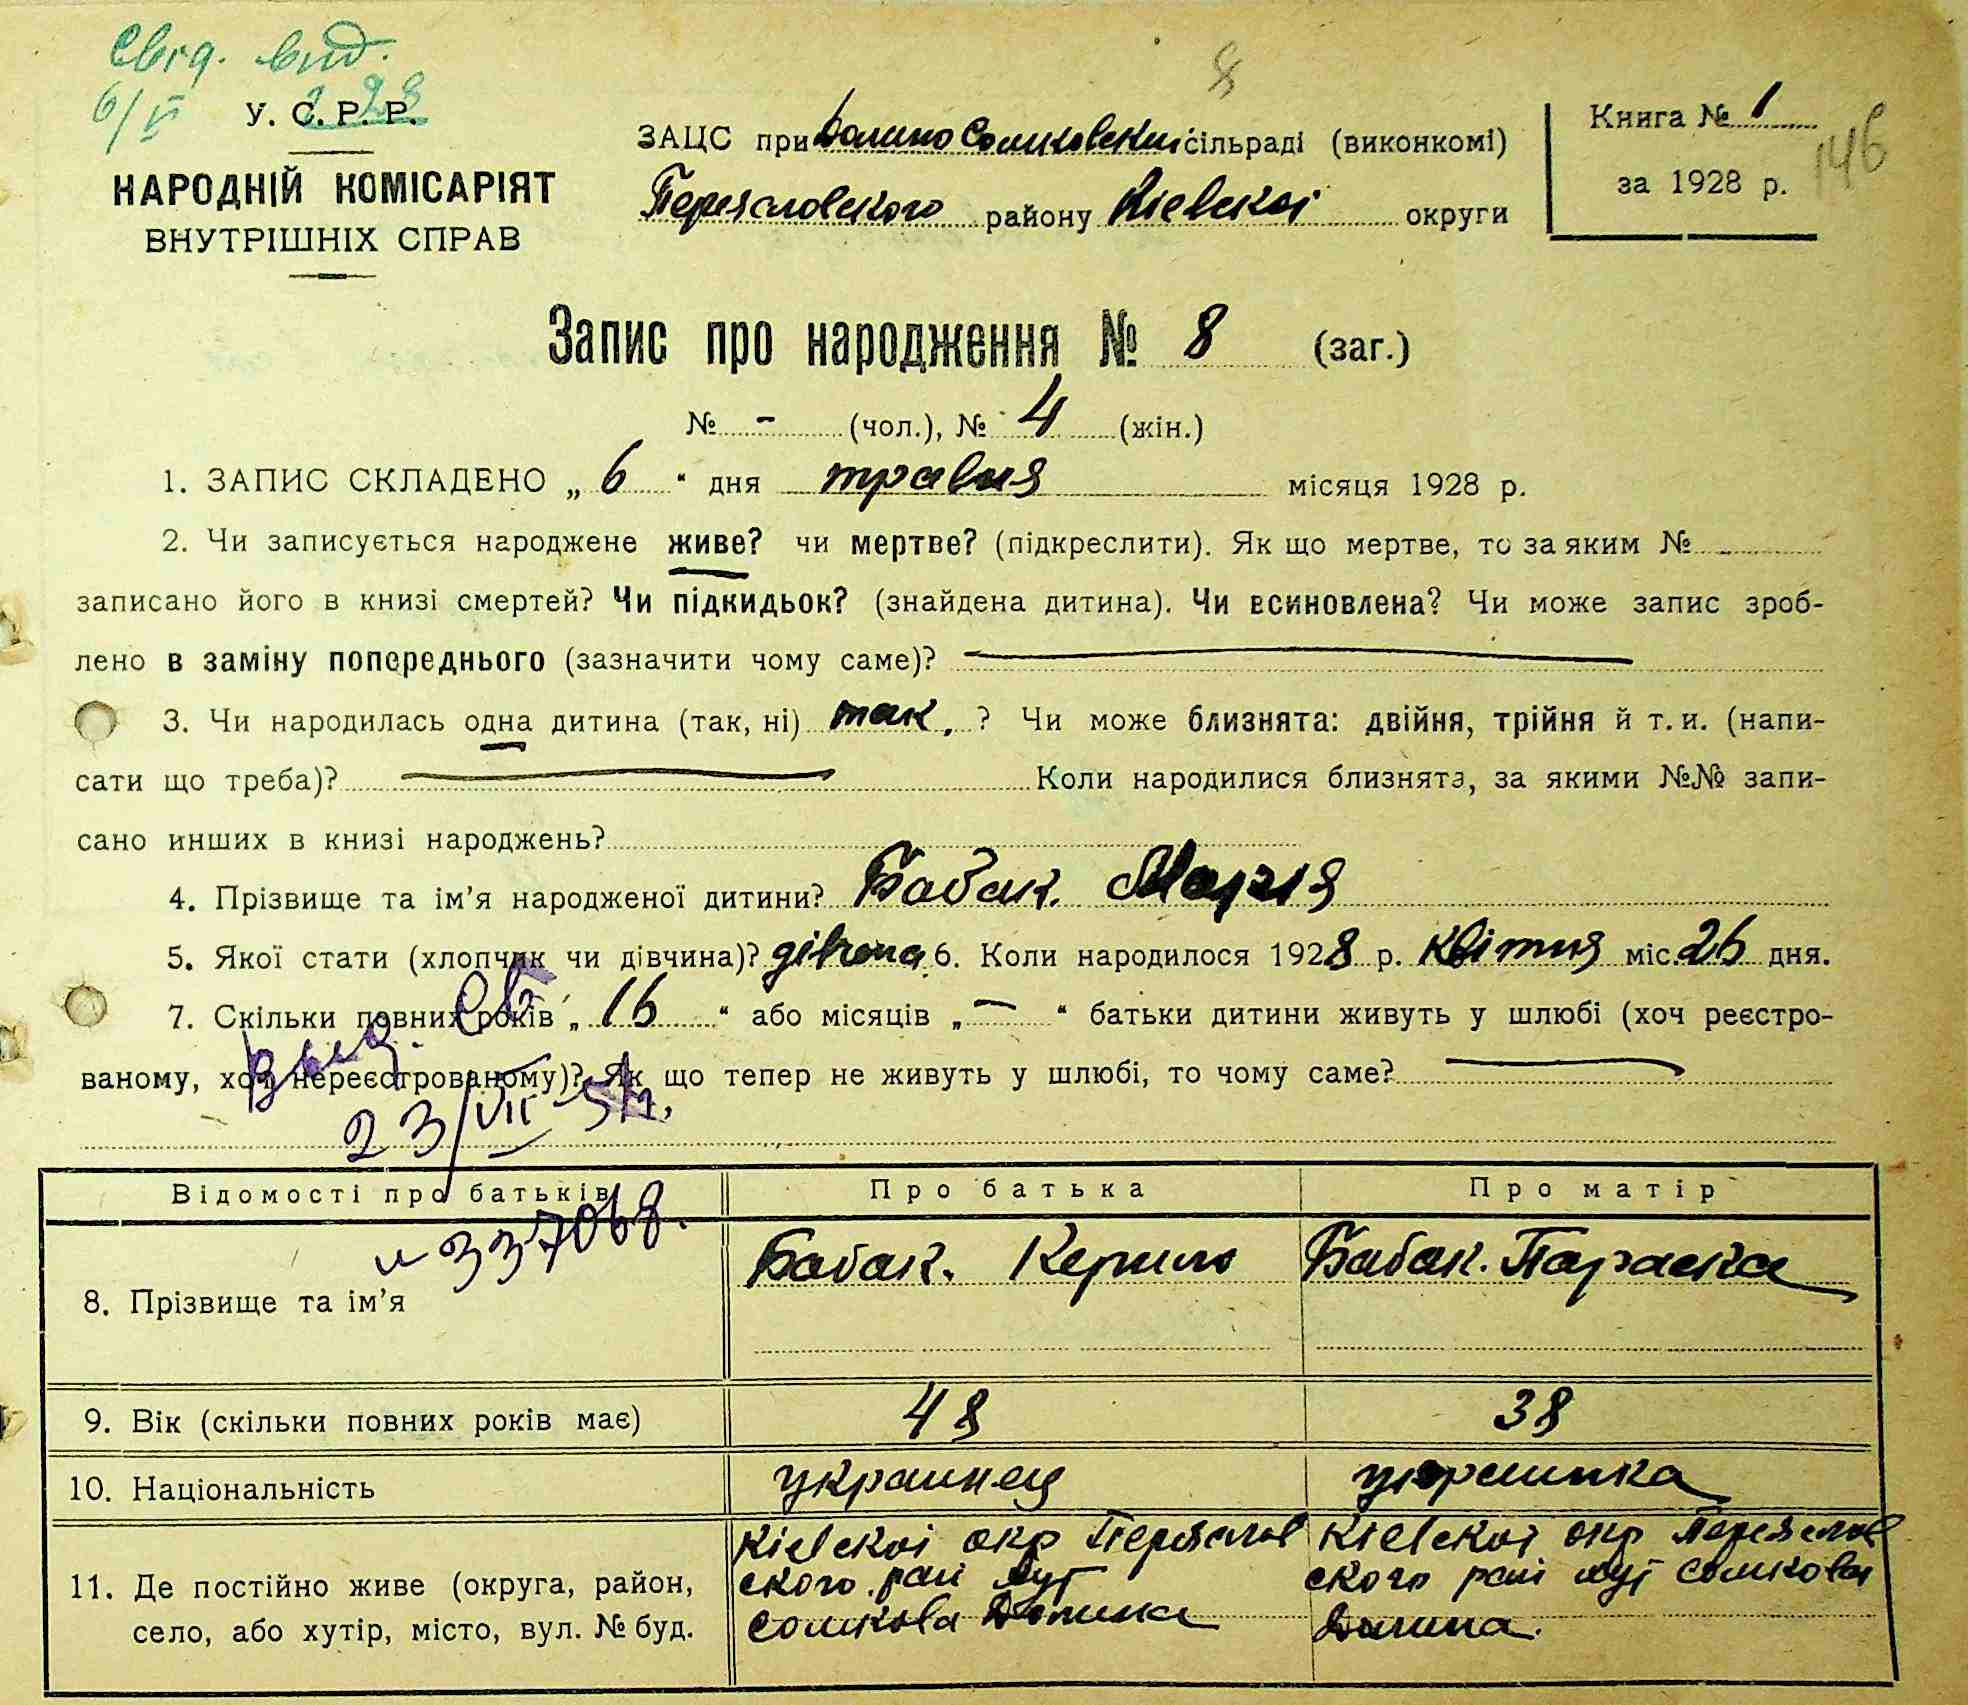 Свід. вид.
6/V 28
У. С. Р. Р.
НАРОДНІЙ КОМІСАРІЯТ
ВНУТРІШНІХ СПРАВ
8
ЗАЦС при Долино Сомковский сільраді (виконкомі)
Переяславского району Київскої округи
Книга № 1
за 1928 р.
146
Запис про народження № 8 (заг.)
№ - (чол.), № 4 (жін.)
1. ЗАПИС СКЛАДЕНО „ 6 “ дня травня місяця 1928 р.
2. Чи записується народжене живе? чи мертве? (підкреслити). Як що мертве, то за яким №
записано його в книзі смертей? Чи підкидьок? (знайдена дитина). Чи всиновлена? Чи може запис зроб-
лено в заміну попереднього (зазначити чому саме)?
3. Чи народилась одна дитина (так, ні) так. ? Чи може близнята: двійня, трійня й т. и. (напи-
сати що треба)? Коли народилися близнята, за якими №№ запи-
сано инших в книзі народжень?
4. Прізвище та ім'я народженої дитини? Бабак. Марія
5. Якої стати (хлопчик чи дівчина)? дівчена 6. Коли народилося 1928 р. Квітня міс. 26 дня.
7. Скільки повних років „ 16 “ або місяців „ — “ батьки дитини живуть у шлюбі (хоч реєстро-
ваному, хоч нереєстрованому)? Як що тепер не живуть у шлюбі, то чому саме?
выд. св
23/VII 54
№ 337068.
Відомості про батьків Про батька Про матір
8. Прізвище та ім'я Бабак. Керило Бабак. Параска
9. Вік (скільки повних років має) 48 38
10. Національність украинец украинка
11. Де постійно живе (округа, район, село, або хутір, місто, вул. № буд.
Кіевскоі окр Переяслов
ского рай хут
Сомкова Долина
Кіевскоі окр Переяслов
ского рай хут Сомкова
Долина.